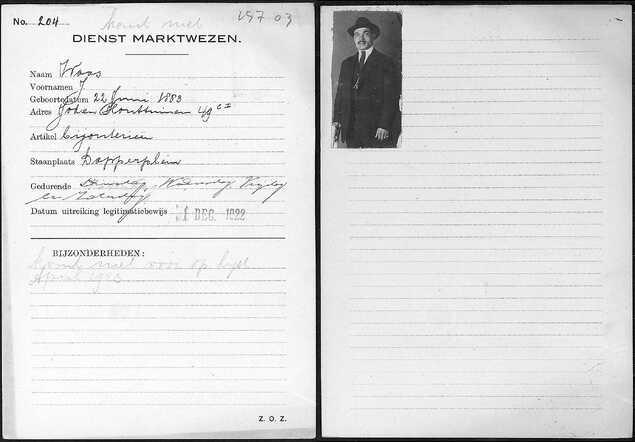 No. 204 Komt niet 197 03
DIENST MARKTWEZEN.
Naam Vaas
Voornamen J
Geboortedatum 22 Juni 1883
Adres Joden Houttuinen 49
Artikel Bijouterieën
Staanplaats Dapperplein
Gedurende Dinsdag, Woensdag, Vrijdag
en Zaterdag
Datum uitreiking legitimatiebewijs 1 DEC. 1922
BIJZONDERHEDEN:
Komt niet voor op lijst
April 1923
Z. O. Z.